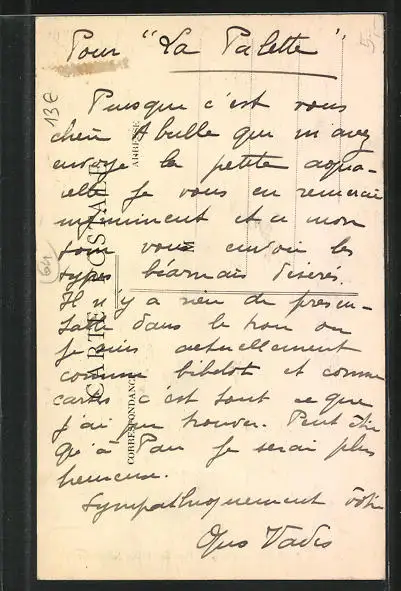 Pour "La Palette"
5,-
13€
Puisque c'est vous
cher Abulle que m'avez
envoyé la petite aqua-
relle je vous en remercie
infiniment et a mon
tour vous envoie les
types béarnais désirés.
Il n'y a rien de présen-
table dans le trou ou
je suis actuellement
comme bibelot et comme
cartes c'est tout ce que
j'ai pu trouver. Peut être
qu'à Pau je serai plus
heureux.
Sympathiquement votre
Quo Vadis
64
CARTE POSTALE
CORRESPONDANCE
ADRESSE